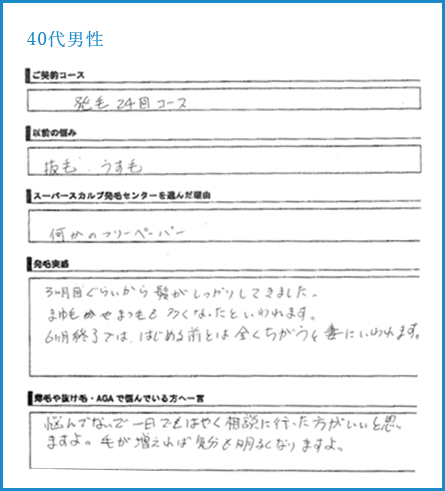 40代男性
ご契約コース
発毛24回コース
以前の悩み
抜毛 うす毛
スーパースカルプ発毛センターを選んだ理由
何かのフリーペーパー
発毛実感
3ヶ月目ぐらいから髪がしっかりしてきました。
まゆ毛かやまつ毛も多くなったといわれます。
6ヶ月終了では、はじめる前とは全くちがうと妻にいわれます。
薄毛や抜け毛・AGAで悩んでいる方へ一言
悩んでないで一日でもはやく相談に行った方がいいと思い
ますよ。毛が増えれば気分も明るくなりますよ。